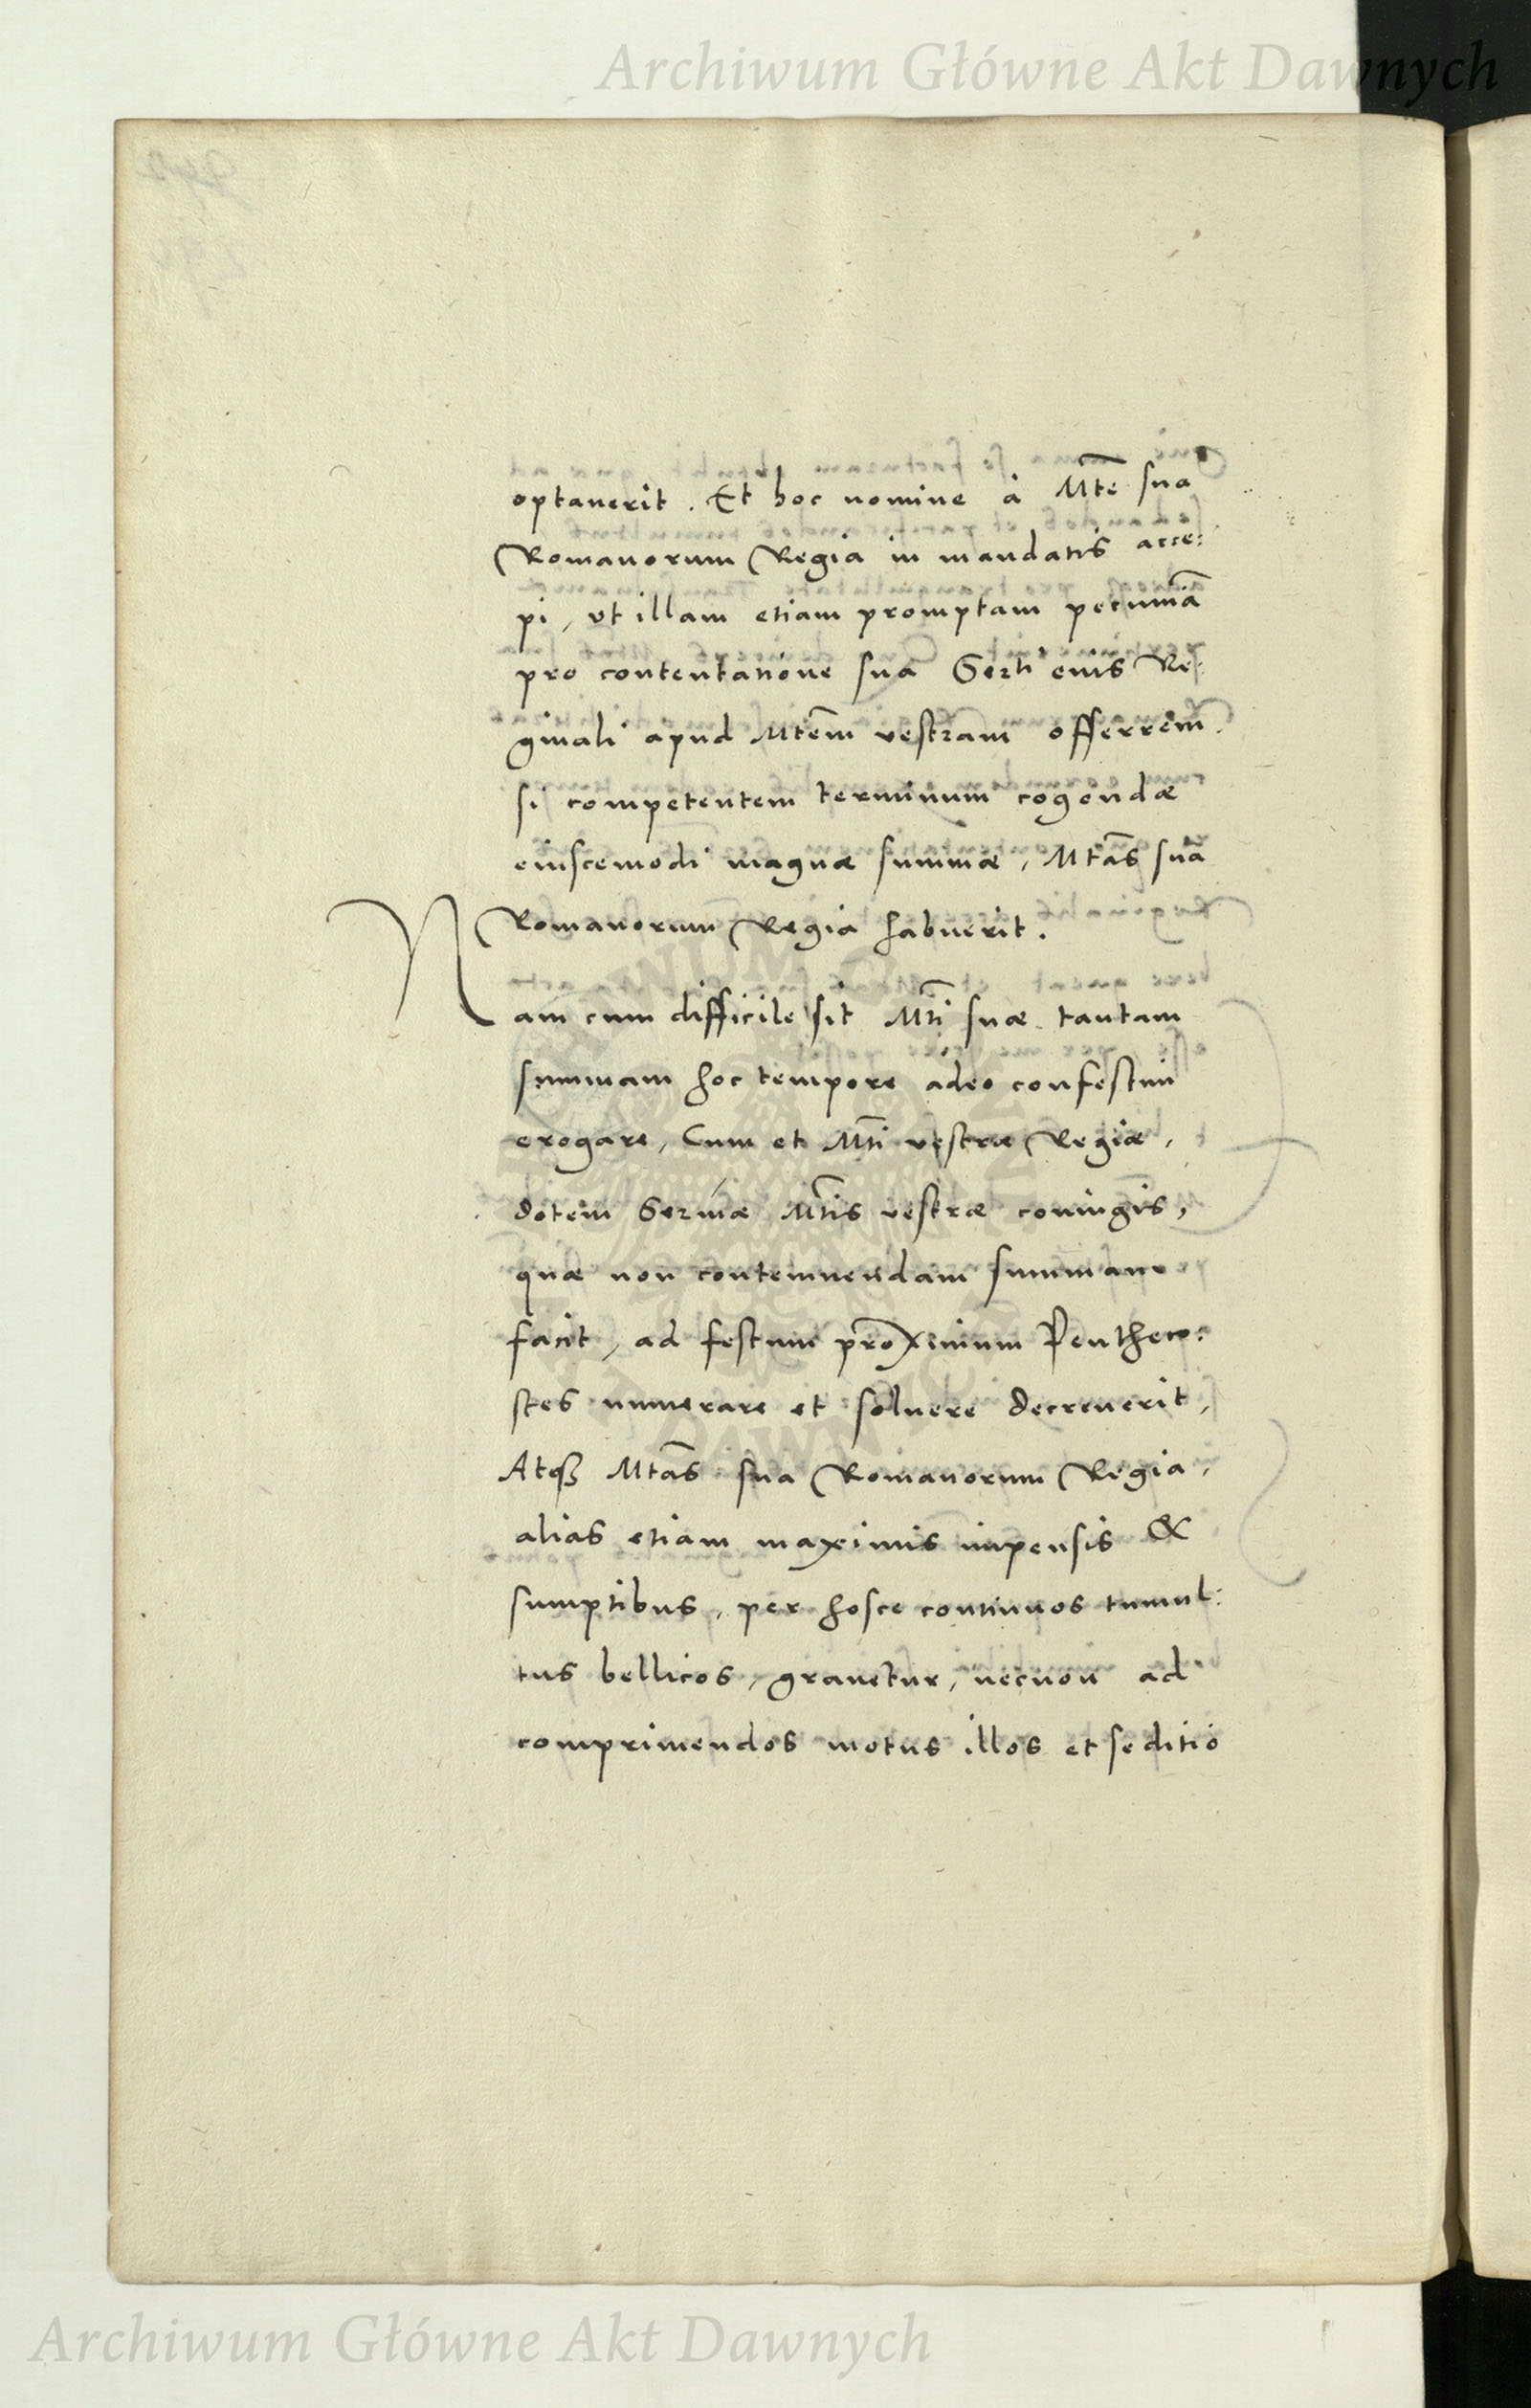 Archiwum Główne Akt Dawnych
optauerit. Et hoc nomine à Mte͞ sua
Romanorum Regia in mandatis acce:
pi, vt illam etiam promptam pecuniã
pro contentatione sua Serti eius Re:
ginali apud Mte͞m vestram offerrem,
si competentem terminum cogendæ
eiuscemodi magnæ summæ, Mta͞s sua
Romanorum Regia habuerit.
Nam cum difficile sit Mti͞ suæ tantam
summam hoc tempore adeo confestim
erogare, Cum et Mti͞ vestræ Regiæ,
dotem Sermæ Mti͞s vestræ coniugis,
quæ non contemnendam summam
facit, ad festum proximum Pentheco:
stes numerare et soluere decreuerit,
Atqȝ Mta͞s sua Romanorum Regia,
alias etiam maximis impensis &
sumptibus, per hosce continuos tumul:
tus bellicos, grauetur, necnon ad
comprimendos motus illos et seditio
Archiwum Główne Akt Dawnych